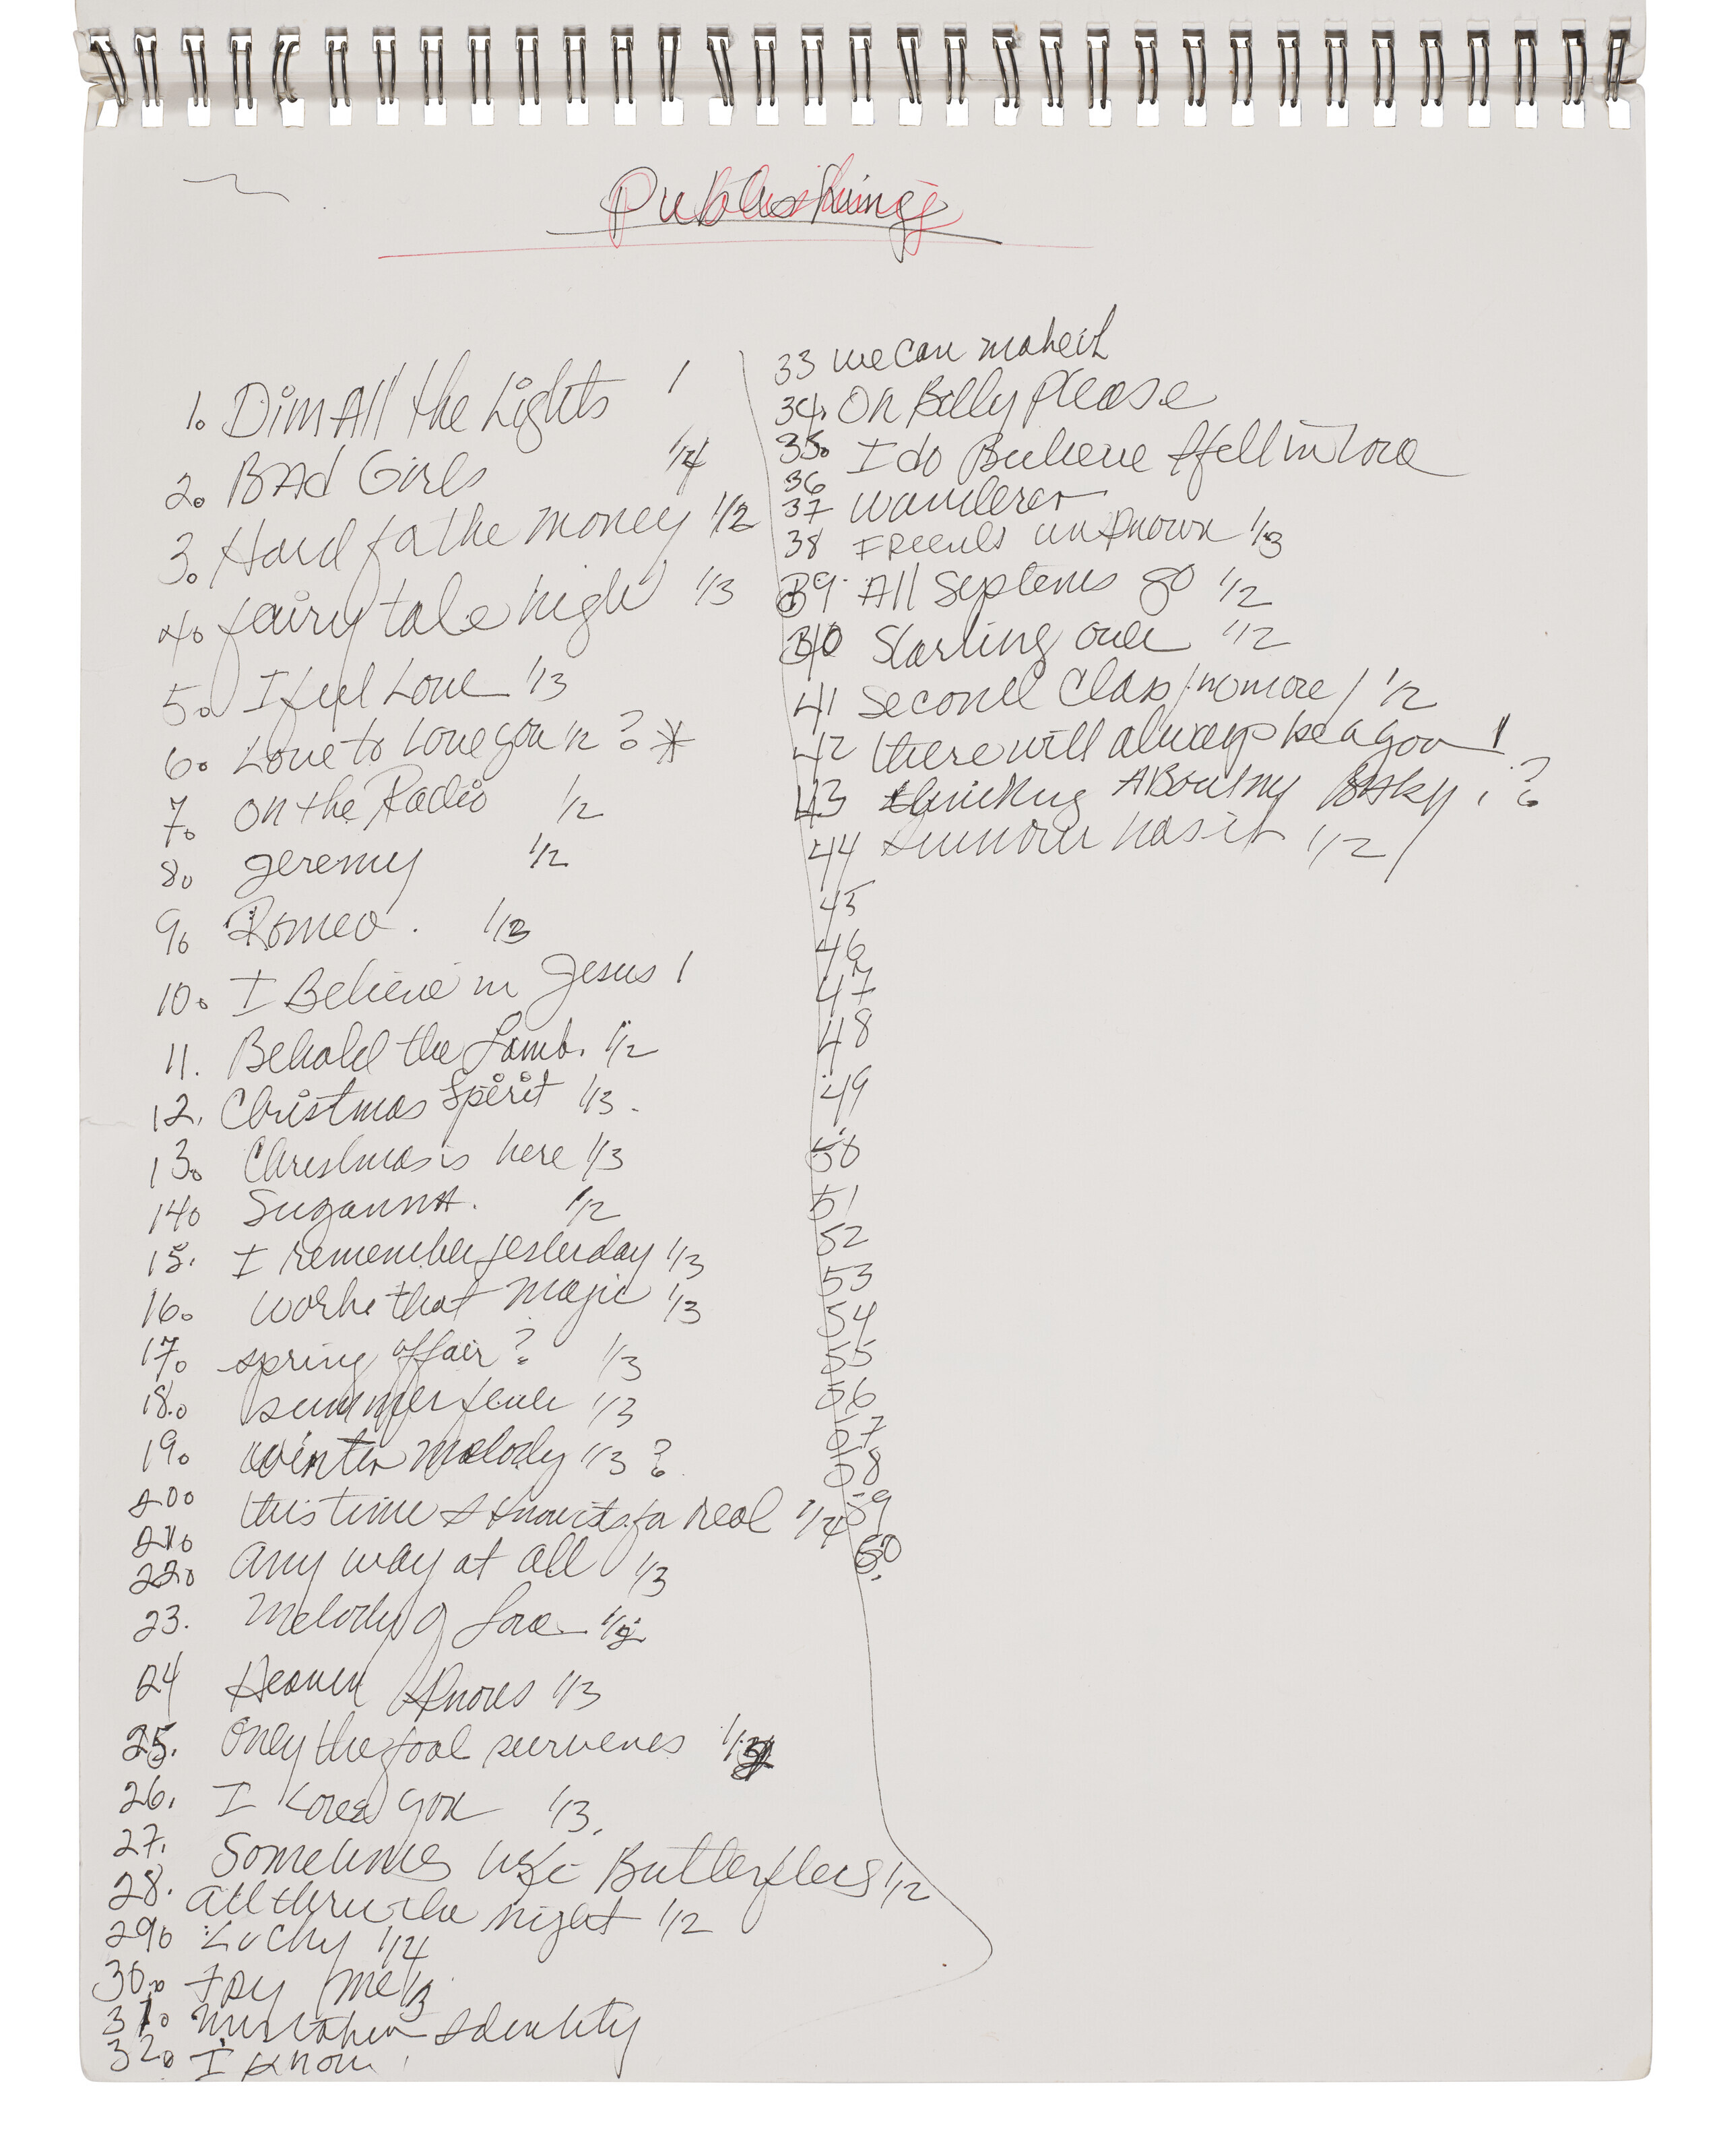 Publishing
1. Dim All the Lights 1
2. BAd Girls 1/4
3. Hard fa the money 1/2
4. fairy tale high 1/3
5. I feel Love 1/3
6. Love to Love you 1/2 ? *
7. on the Radio 1/2
8. Jeremy 1/2
9. Romeo. 1/3
10. I Believe in Jesus 1
11. Behold the Lamb. 1/2
12. Christmas Spirit 1/3.
13. Christmas is here 1/3
14. SuzannA. 1/2
15. I remember yesterday 1/3
16. worke that magic 1/3
17. spring affair ? 1/3
18. summer fever 1/3
19. winter melody 1/3 ?
20. this time I know its fa real 1/4
21.
22. any way at all 1/3
23. Melody of Love 1/2
24 Heaven Knows 1/3
25. Only the fool survives
26. I Love you 1/3.
27. Sometimes like Butterflies 1/2
28. all thru the night 1/2
29. Lucky 1/4
30. Try me 1/3
31. Mistaken Identity
32. I know
33 we can make it
34. Oh Billy Please
35. I do Believe I fell in love
36
37 wanderer
38 Friends unknown 1/3
39. All Systems go 1/2
40 Starting over 1/2
41 Second Class / nomore / 1/2
42 there will always be a you 1
43 thinking ABout my BAby. ?
44 rumour has it 1/2 /
45
46
47
48
49
50
51
52
53
54
55
56
57
58
59
60.